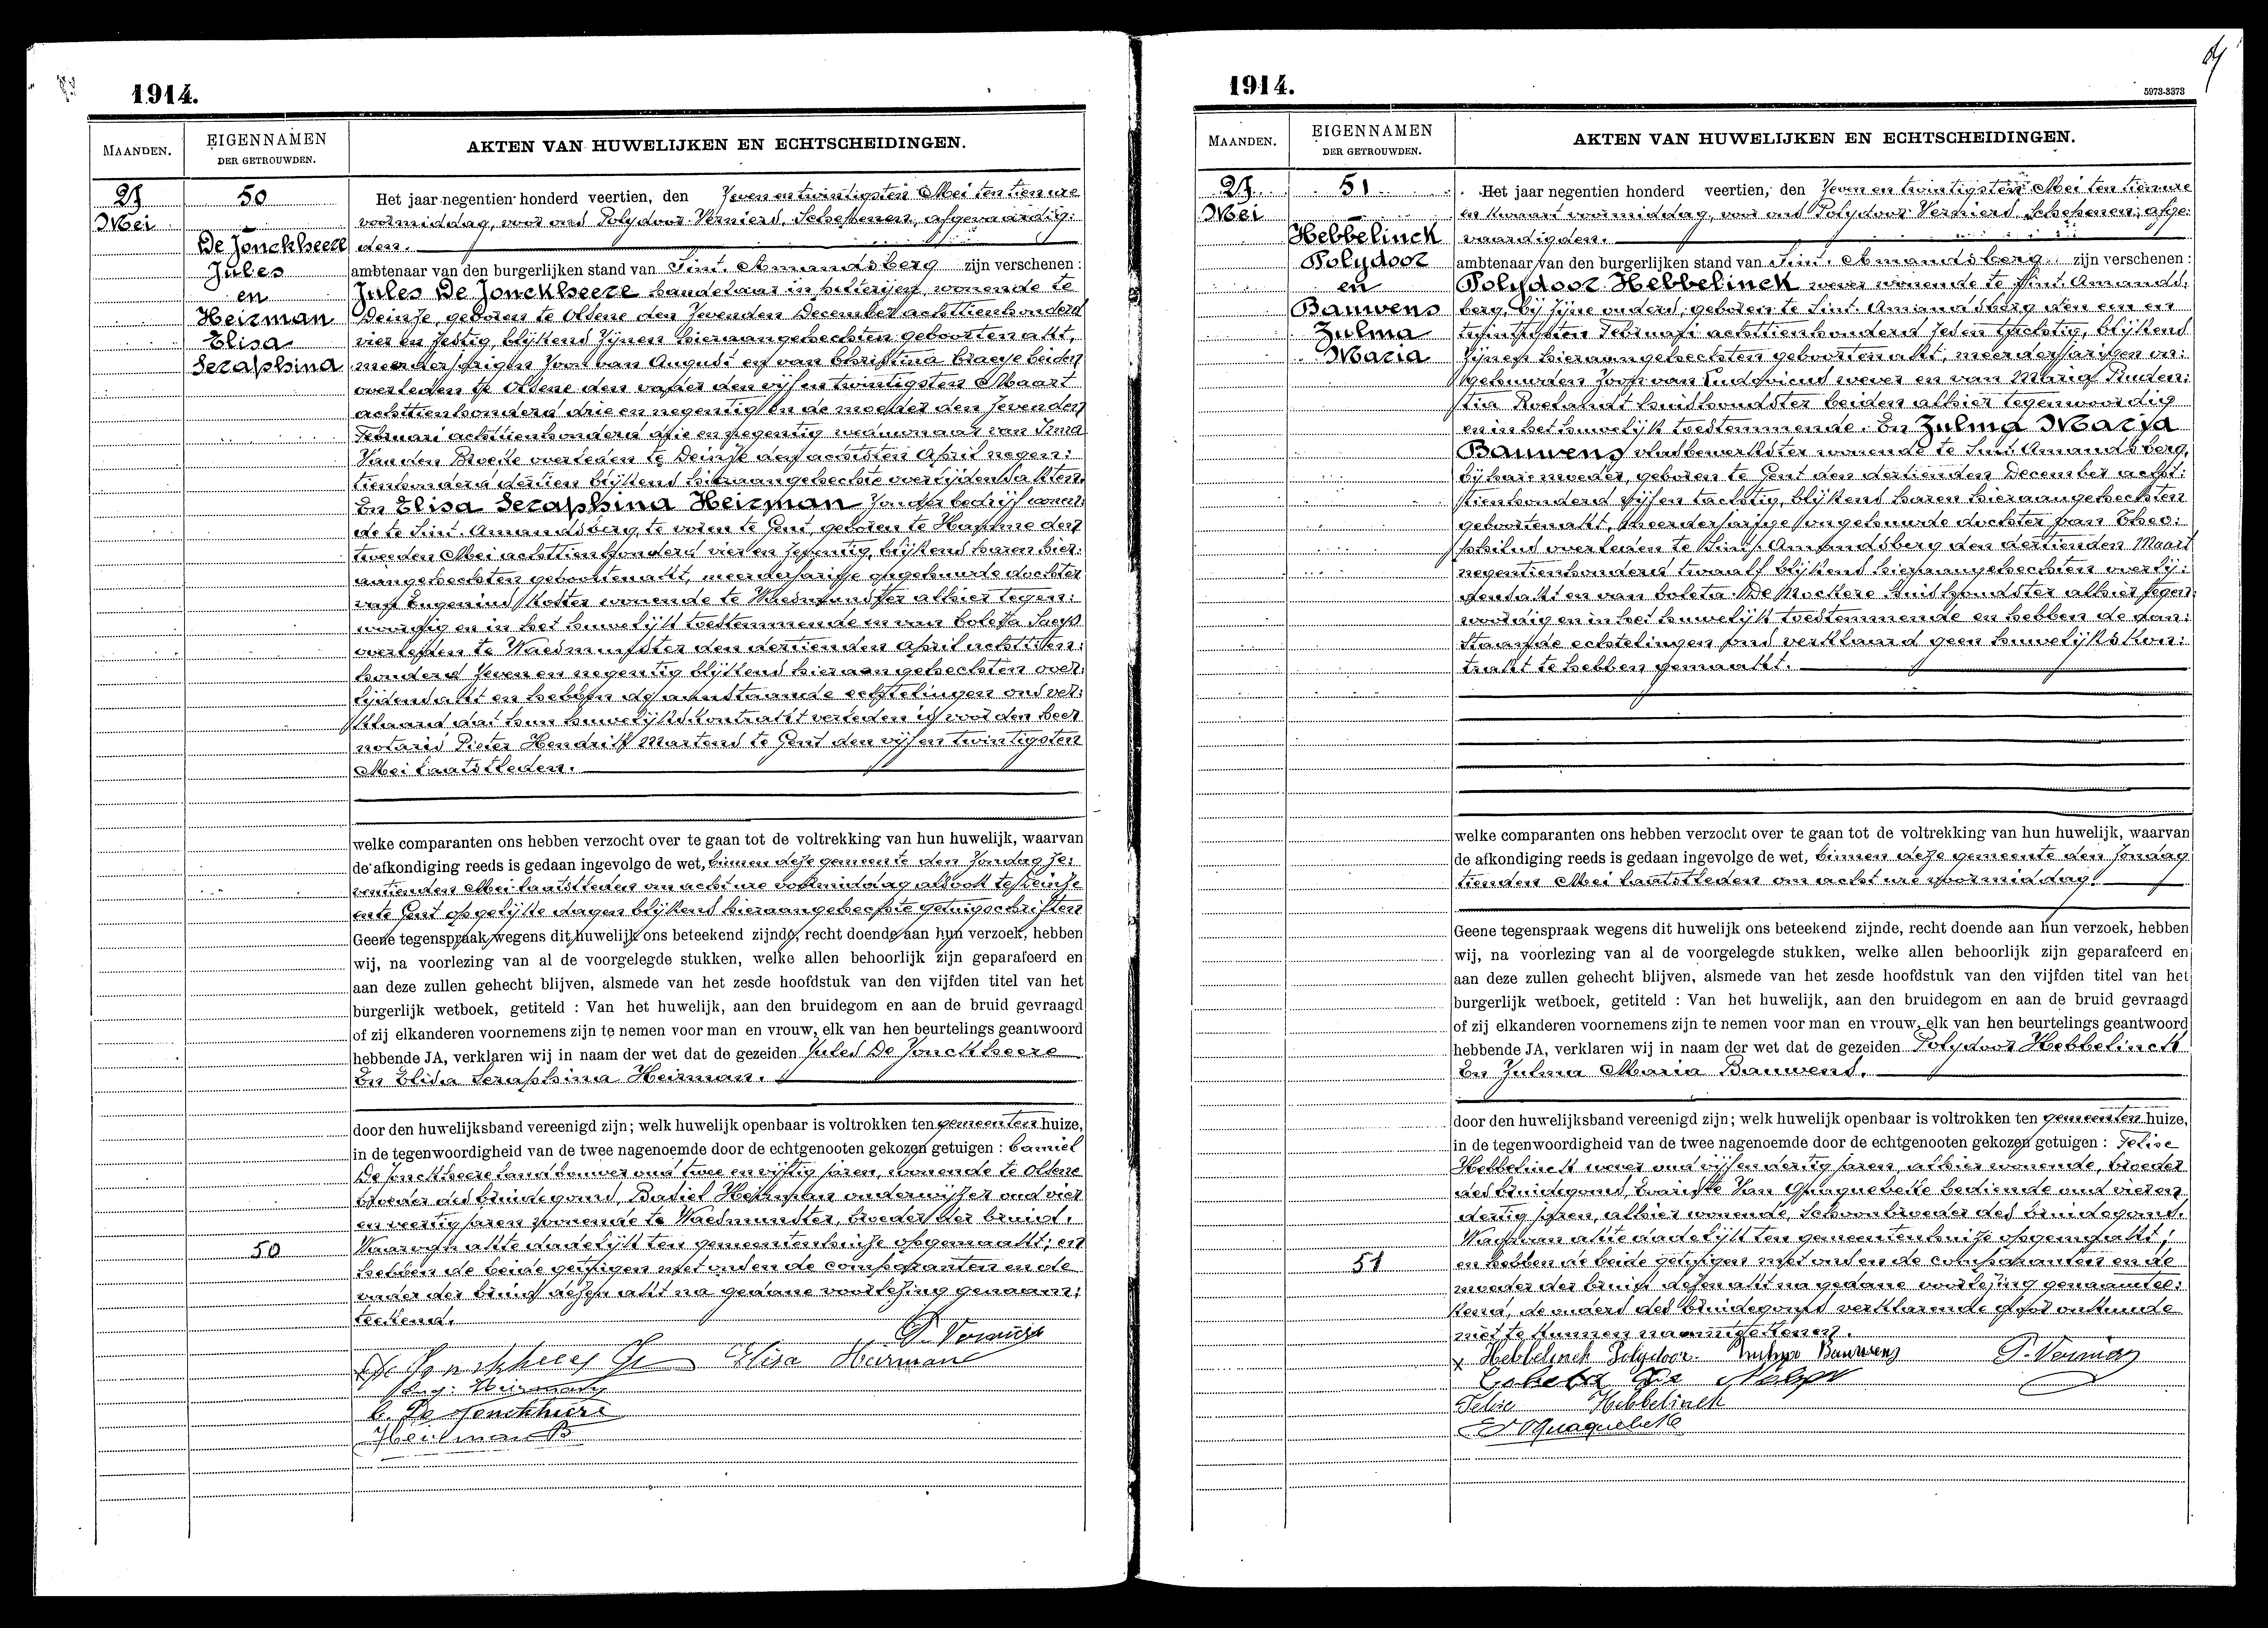 1914.
MAANDEN.
EIGENNAMEN
DER GETROUWDEN.
AKTEN VAN HUWELIJKEN EN ECHTSCHEIDINGEN.
27
Mei
50
De Jonckheere
Jules
en
Heirman
Elisa
Seraphina
Het jaar negentien honderd veertien, den Zeven en twintigsten Mei ten tien ure
voormiddag, voor ons Polydoor Verniers, Schepenen, afgevaardig:
den.
ambtenaar van den burgerlijken stand van Sint. Amandsberg zijn verschenen :
Jules De Jonckheere handelaar in wonende te
Deinze, geboren te Olsene den Zevenden December achttienhonderd
vier en zestig, blijkens zijnen hieraangehechten geboortenakt,
meerderjarigen zoon van August en van Christina Craeye beiden
overleden te Olsene den vader den vijf en twintigsten Maart
achttienhonderd drie en negentig en de moeder den zevenden
Februari achttienhonderd drie en negentig weduwnaar van Irma
Van den Broeke overleden te Deinze den achtsten April negen:
tienhonderd dertien blijkens hieraangehechte overlijdensakten.
En Elisa Seraphina Heirman zonder bedrijf wonen:
de te Sint. Amandsberg, te voren te Gent, geboren te Hamme den
tweeden Mei achttienhonderd vier en zeventig, blijkens haren hier:
aangehechten geboortenakt, meerderjarige ongehuurde dochter
van Eugenius Koster wonende te Waesmunster alhier tegen:
woordig en in het huwelijk toestemmende en van Coleta Saeys
overleden te Waesmunster den dertienden April achttien:
honderd zeven en negentig blijkens hieraangehechten over:
lijdensakt en hebben de aanstaande echtelingen ons ver:
klaard dat hun huwelijkskontrakt verleden is voor den heer
notaris Pieter Hendrik Martens te Gent den vijf en twintigsten
Mei laatstleden.
welke comparanten ons hebben verzocht over te gaan tot de voltrekking van hun huwelijk, waarvan
de afkondiging reeds is gedaan ingevolge de wet, binnen deze gemeente den Zondag ze:
ventienden Mei laatstleden om acht ure voormiddag alsook te Deinze
en te Gent op gelijke dagen blijkens hieraangehechte getuigschriften
Geene tegenspraak wegens dit huwelijk ons beteekend zijnde, recht doende aan hun verzoek, hebben
wij, na voorlezing van al de voorgelegde stukken, welke allen behoorlijk zijn geparafeerd en
aan deze zullen gehecht blijven, alsmede van het zesde hoofdstuk van den vijfden titel van het
burgerlijk wetboek, getiteld : Van het huwelijk, aan den bruidegom en aan de bruid gevraagd
of zij elkanderen voornemens zijn te nemen voor man en vrouw, elk van hen beurtelings geantwoord
hebbende JA, verklaren wij in naam der wet dat de gezeiden Jules De Jonckheere
En Elisa Seraphina Heirman.
door den huwelijksband vereenigd zijn; welk huwelijk openbaar is voltrokken ten gemeenten huize,
in de tegenwoordigheid van de twee nagenoemde door de echtgenooten gekozen getuigen : Camiel
De Jonckheere landbouwer oud twee en vijftig jaren, wonende te Olsene
broeder des bruidegoms, Basiel Heirman onderwijzer oud vier
en veertig jaren wonende te Waesmunster, broeder der bruid.
50
Waarvan akte dadelijk ten gemeentenhuize opgemaakt; en
hebben de beide getuigen met ons en de comparanten en de
vader der bruid dezen akt na gedane voorlezing genaam:
teekend.
P. Verniers
De Jonckheere Elisa Heirman
Eug: Heirman
C. De Jonckheere
Heirman B
1914.
5973-3373
MAANDEN.
EIGENNAMEN
DER GETROUWDEN.
AKTEN VAN HUWELIJKEN EN ECHTSCHEIDINGEN.
27
Mei
51
Hebbelinck
Polydoor
en
Bauwens
Zulma
Maria
Het jaar negentien honderd veertien, den Zeven en twintigsten Mei ten tien ure
en kwaart voormiddag, voor ons Polydoor Verniers Schepenen, afge:
vaardigden.
ambtenaar van den burgerlijken stand van Sint. Amandsberg zijn verschenen :
Polydoor Hebbelinck wever wonende te Sint. Amands.
berg, bij zijne ouders, geboren te Sint. Amandsberg den een en
twintigsten Februari achttienhonderd zes en tachtig, blijkens
zijnen hieraangehechten geboortenakt, meerderjarigen on:
gehuurden zoon van Ludovicus wever en van Maria Pruden:
tia Roelandt huishoudster beiden alhier tegenwoordig
en in het huwelijk toestemmende. En Zulma Maria
Bauwens vlasbewerkster wonende te Sint. Amandsberg,
bij hare moeder, geboren te Gent den dertienden December acht:
tienhonderd vijf en tachtig, blijkens haren hieraangehechten
geboortenakt, meerderjarige ongehuurde dochter van Theo:
philus overleden te Sint. Amandsberg den dertienden Maart
negentienhonderd twaalf blijkens hieraangehechten overlij:
densakt en van Coleta De Mockere huishoudster alhier tegen:
woordig en in het huwelijk toestemmende en hebben de aan:
staande echtelingen ons verklaard geen huwelijkskon:
trakt te hebben gemaakt.
welke comparanten ons hebben verzocht over te gaan tot de voltrekking van hun huwelijk, waarvan
de afkondiging reeds is gedaan ingevolge de wet, binnen deze gemeente den Zondag
tienden Mei laatstleden om acht ure voormiddag.
Geene tegenspraak wegens dit huwelijk ons beteekend zijnde, recht doende aan hun verzoek, hebben
wij, na voorlezing van al de voorgelegde stukken, welke allen behoorlijk zijn geparafeerd en
aan deze zullen gehecht blijven, alsmede van het zesde hoofdstuk van den vijfden titel van het
burgerlijk wetboek, getiteld : Van het huwelijk, aan den bruidegom en aan de bruid gevraagd
of zij elkanderen voornemens zijn te nemen voor man en vrouw, elk van hen beurtelings geantwoord
hebbende JA, verklaren wij in naam der wet dat de gezeiden Polydoor Hebbelinck
En Zulma Maria Bauwens.
door den huwelijksband vereenigd zijn; welk huwelijk openbaar is voltrokken ten gemeenten huize,
in de tegenwoordigheid van de twee nagenoemde door de echtgenooten gekozen getuigen : Felice
Hebbelinck wever oud vijf en dertig jaren, alhier wonende, broeder
des bruidegoms, Evariste Van Quaquebeke bediende oud vier en
dertig jaren, alhier wonende, schoonbroeder des bruidegoms.
51
Waarvan akte dadelijk ten gemeentenhuize opgemaakt;
en hebben de beide getuigen met ons en de comparanten en de
moeder der bruid dezen akt na gedane voorlezing genaamtee:
kend, de ouders des bruidegoms verklarende door onkunde
niet te kunnen naamteekenen.
x Hebbelinck Polydoor. Zulma Bauwens P. Verniers
Coleta De
Felice Hebbelinck
E V Quaquebeke